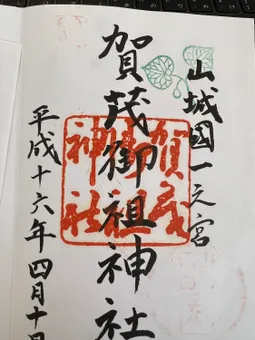 山城國一之宮
賀茂御祖神社
平成十六年四月十日